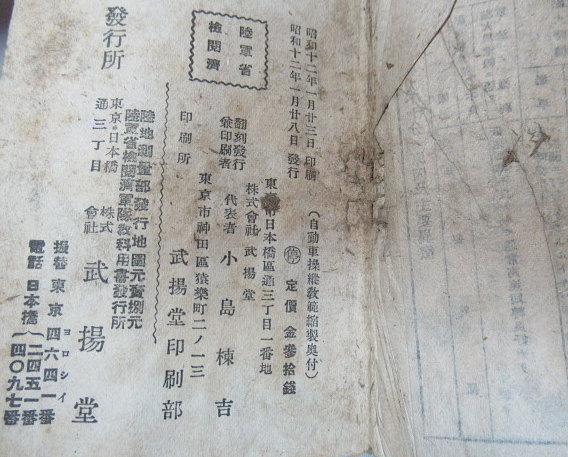 昭和十二年一月廿三日 印刷
昭和十二年一月廿八日 發行
(自動車操縱教範縮製奥付)
停 定價 金參拾錢
陸軍省
檢閲濟
東京市日本橋區通三丁目一番地
翻刻發行
兼印刷者
株式會社 武揚堂
代表者 小島棟吉
東京市神田區猿樂町二ノ一三
印刷所 武揚堂印刷部
陸地測量部發行地圖元賣捌元
陸軍省檢閲濟軍隊教科用書發行所
發行所
東京・日本橋
通三丁目
株式
會社
武揚堂
ヨロシイ
振替東京四六四一番
電話 日本橋
二四五一番
四〇九七番